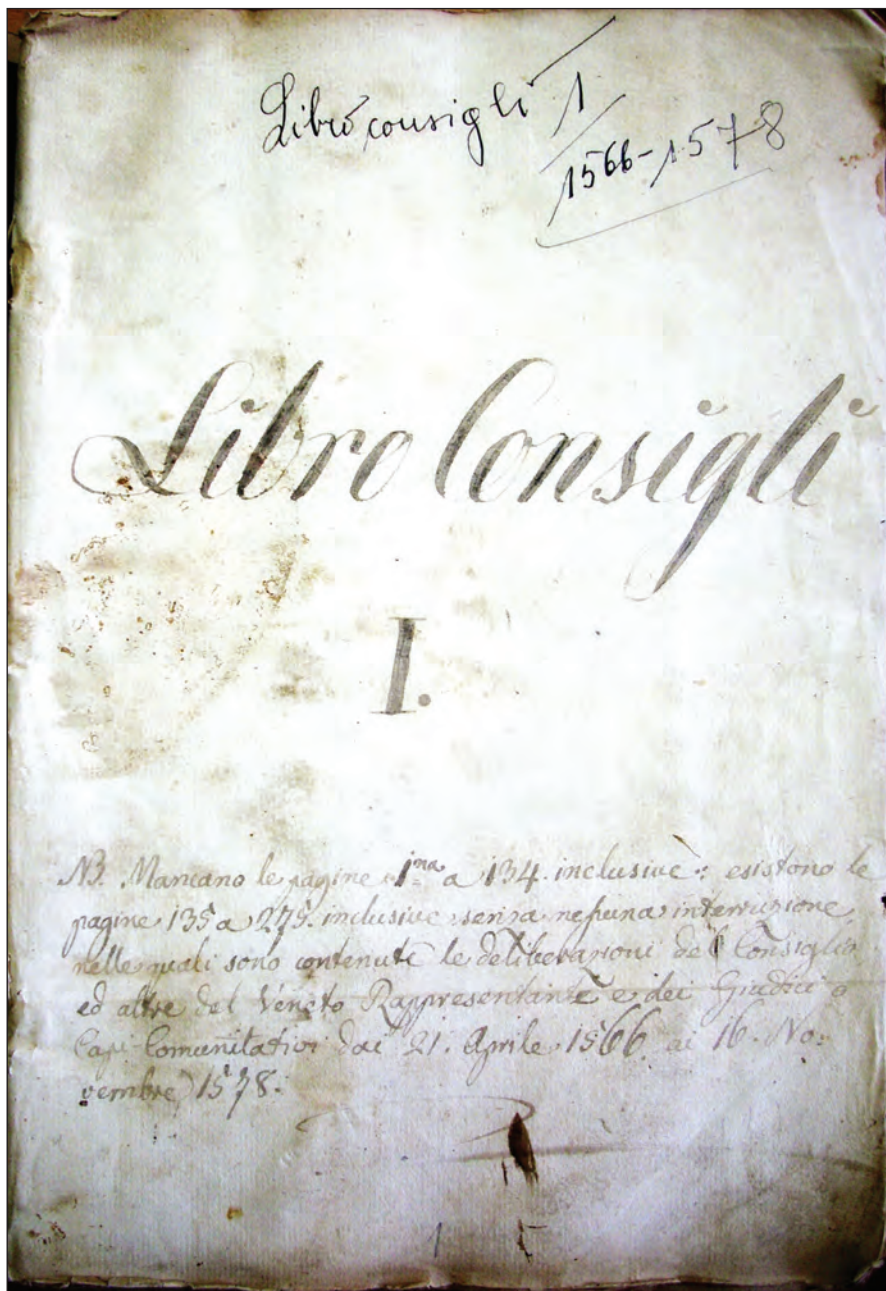 Libro consigli 1
1566-1578
Libro Consigli
I.
NB. Mancano le pagine 1ma a 134. inclusive: esistono le
pagine 135 a 275. inclusive senza nessuna interruzione,
nelle quali sono contenute le deliberazioni del Consiglio
ed altre del Veneto Rappresentante e dei Giudici o
Capi Comunitativi dai 21. Aprile 1566 ai 16. No=
vembre 1578.